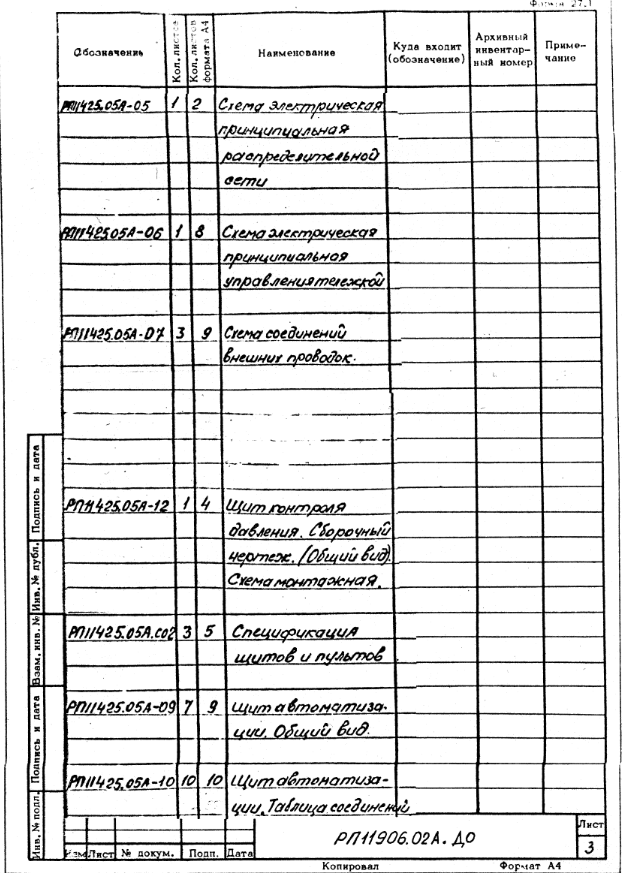 Форма 27.1
Обозначение
Кол. листов
Кол. листов формата А4
Наименование
Куда входит (обозначение)
Архивный инвентар-ный номер
Приме-чание
РП11425.05А-05 1 2 Схема электрическая
принципиальная
распределительной
сети
РП11425.05А-06 1 8 Схема электрическая
принципиальная
управления тележкой
РП11425.05А-07 3 9 Схема соединений
внешних проводок.
РП11425.05А-12 1 4 Щит контроля
давления. Сборочный
чертеж. (Общий вид).
Схема монтажная.
РП11425.05А.С02 3 5 Спецификация
щитов и пультов
РП11425.05А-09 7 9 Щит автоматиза-
ции. Общий вид.
РП11425.05А-10 10 10 Щит автоматиза-
ции. Таблица соединений
Инв. № подл.
Подпись и дата
Взам. инв. №
Инв. № дубл.
Подпись и дата
Изм Лист № докум. Подп. Дата
РП11906.02А.ДО
Лист
3
Копировал Формат А4